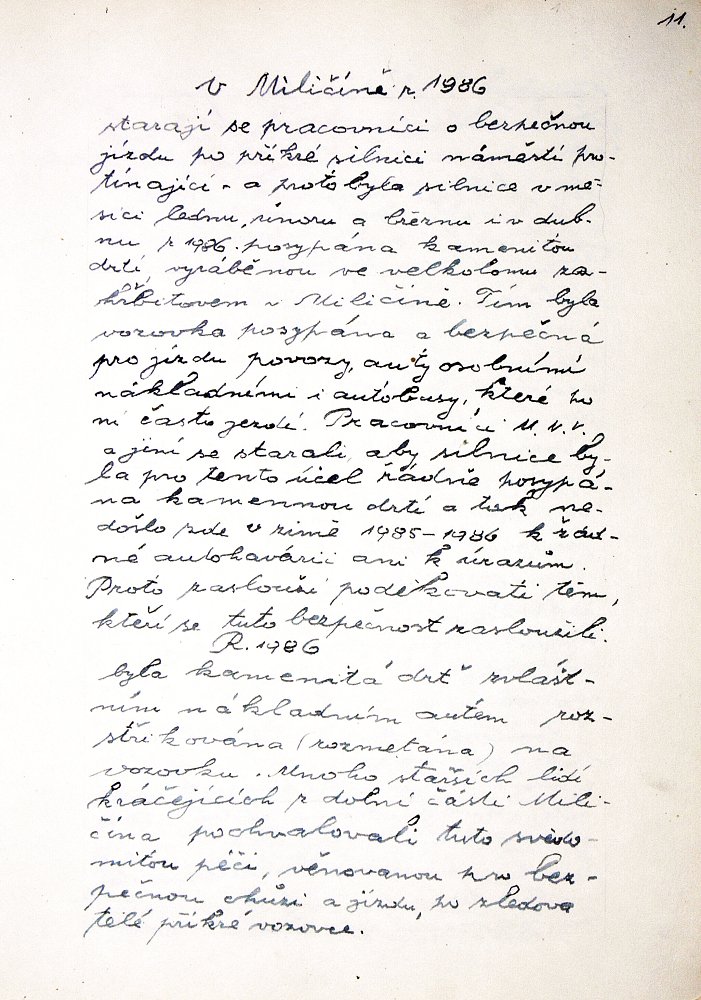 11.
V Miličíně r. 1986
starají se pracovníci o bezpečnou
jízdu po příkré silnici náměstí pro-
tínající - a proto byla silnice v mě-
síci lednu, únoru a březnu i v dub-
nu r 1986. posypána kamenitou
drtí, vyráběnou ve velkolomu za-
hřbitovem v Miličíně. Tím byla
vozovka posypána a bezpečná
pro jízdu povozy, auty osobními
nákladními i autobusy, které po
ní často jezdí. Pracovníci M.N.V.
a jiní se starali, aby silnice by-
la pro tento účel řádně posypá-
na kamennou drtí a tak ne-
došlo zde v zimě 1985-1986 k řád-
né autohavárii ani k úrazům.
Proto zaslouží poděkovati těm,
kteří se tuto bezpečnost zasloužili.
R. 1986
byla kamenitá drť zvlášt-
ním nákladním autem roz-
střikována (rozmetána) na
vozovku. Mnoho starších lidí
kráčejících z dolní části Mili-
čína pochvalovali tuto svědo-
mitou péči, věnovanou pro bez-
pečnou chůzi a jízdu, po zledova
telé příkré vozovce.